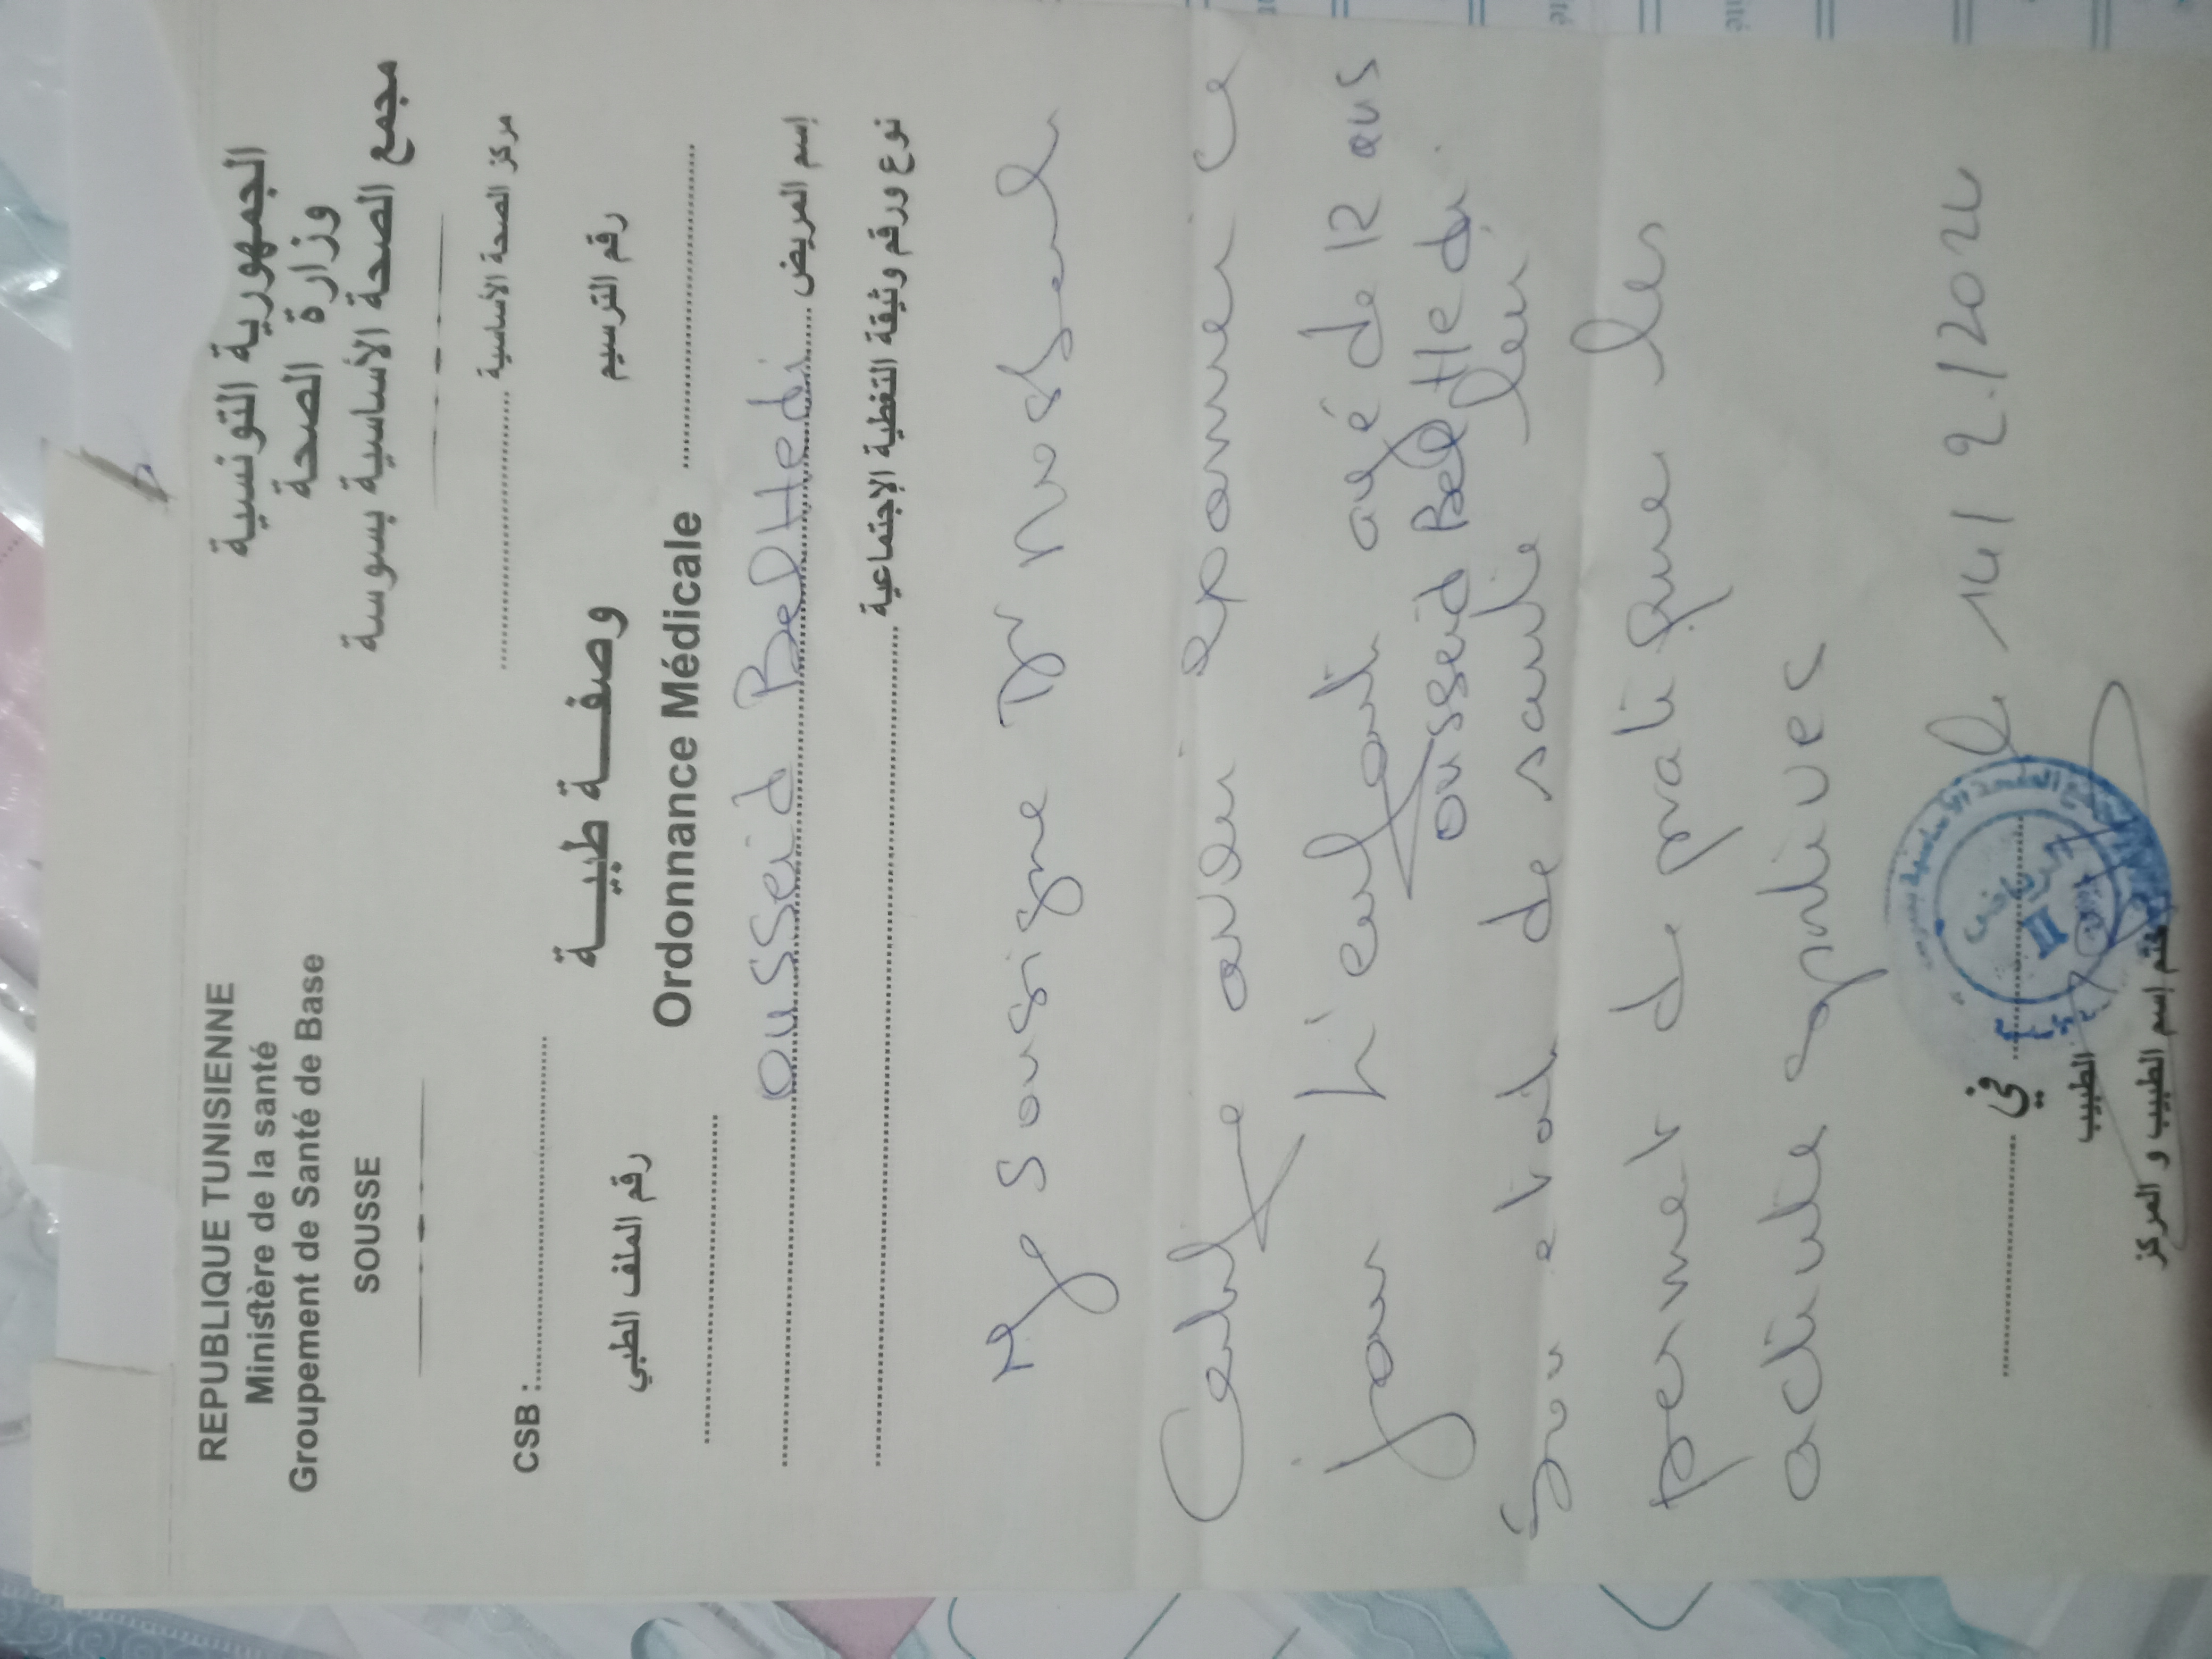 REPUBLIQUE TUNISIENNE
Ministère de la santé
Groupement de Santé de Base
SOUSSE
الجمهورية التونسية
وزارة الصحة
مجمع الصحة الأساسية بسوسة
CSB :
مركز الصحة الأساسية
وصفة طبية
رقم الملف الطبي
رقم الترسيم
Ordonnance Médicale
إسم المريض ousseid BelHedi
نوع ورقم وثيقة التغطية الإجتماعية
sousigne Dr
Certifie avoir examiner ce
jour l'enfant agé de 12 ans
ousseid BelHedi
Son etat de santé leu
permet de pratique les
activite sportives
le 14/9/2024
في
الطبيب
ختم إسم الطبيب و المركز